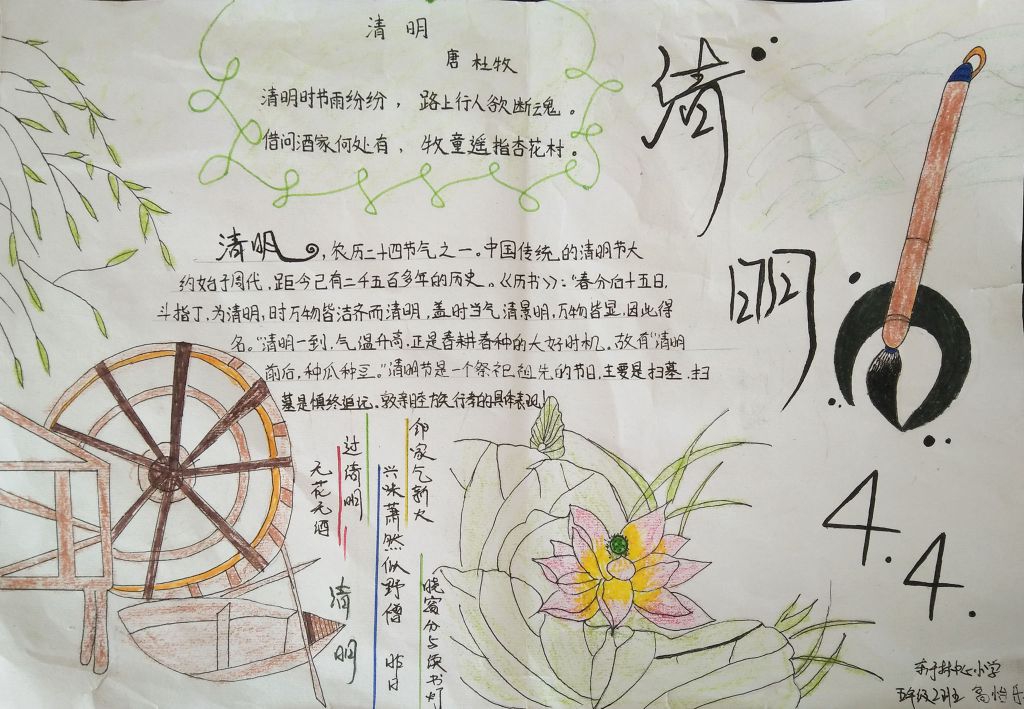 清明
唐 杜牧
清明时节雨纷纷，路上行人欲断魂。
借问酒家何处有，牧童遥指杏花村。
清明
清明，农历二十四节气之一。中国传统的清明节大
约始于周代，距今已有二千五百多年的历史。《历书》：“春分后十五日，
斗指丁，为清明，时万物皆洁齐而清明，盖时当气清景明，万物皆显，因此得
名。”清明一到，气温升高，正是春耕春种的大好时机，故有“清明
前后，种瓜种豆。”清明节是一个祭祀祖先的节日，主要是扫墓，扫
墓是慎终追远、敦亲睦族行孝的具体表现。
清明
无花无酒
过清明
兴味萧然似野僧
昨日
邻家乞新火
晓窗分与读书灯
4.4.
中心小学
五年级2班